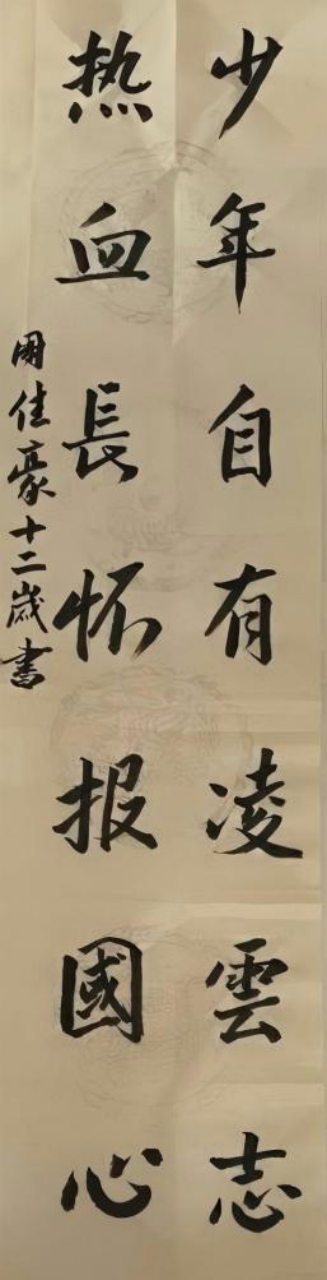 少年自有凌雲志
热血長怀报國心
周佳豪十二歲書